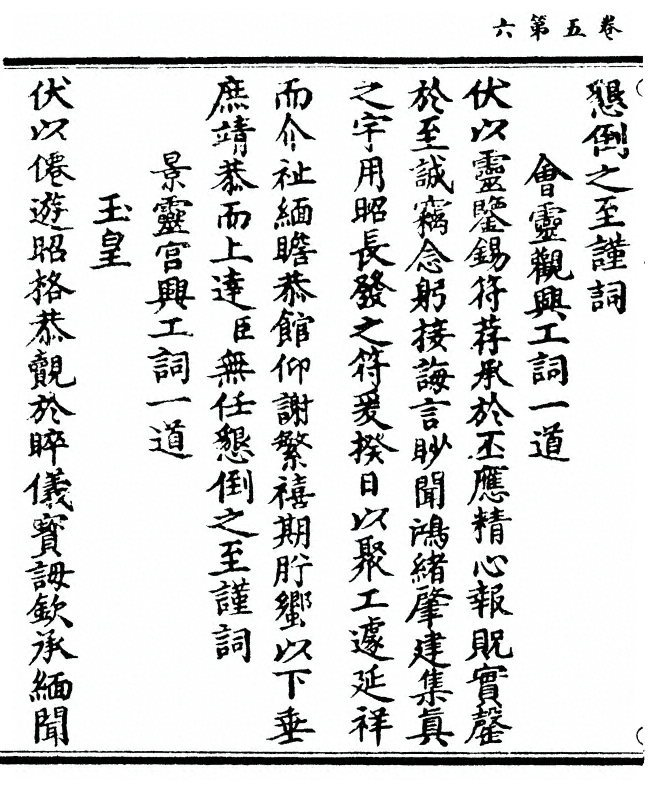 卷五第六
懇倒之至謹詞
會靈觀興工詞一道
伏以靈鑒錫符荐承於丕應精心報貺實罄
於至誠竊念躬接誨言眇聞鴻緒肇建集眞
之宇用昭長發之符爰揆日以聚工遽延祥
而介祉緬瞻恭館仰謝繁禧期肸蠁以下垂
庶靖恭而上達臣無任懇倒之至謹詞
景靈宮興工詞一道
玉皇
伏以僊遊昭格恭覿於睟儀寶誨欽承緬聞